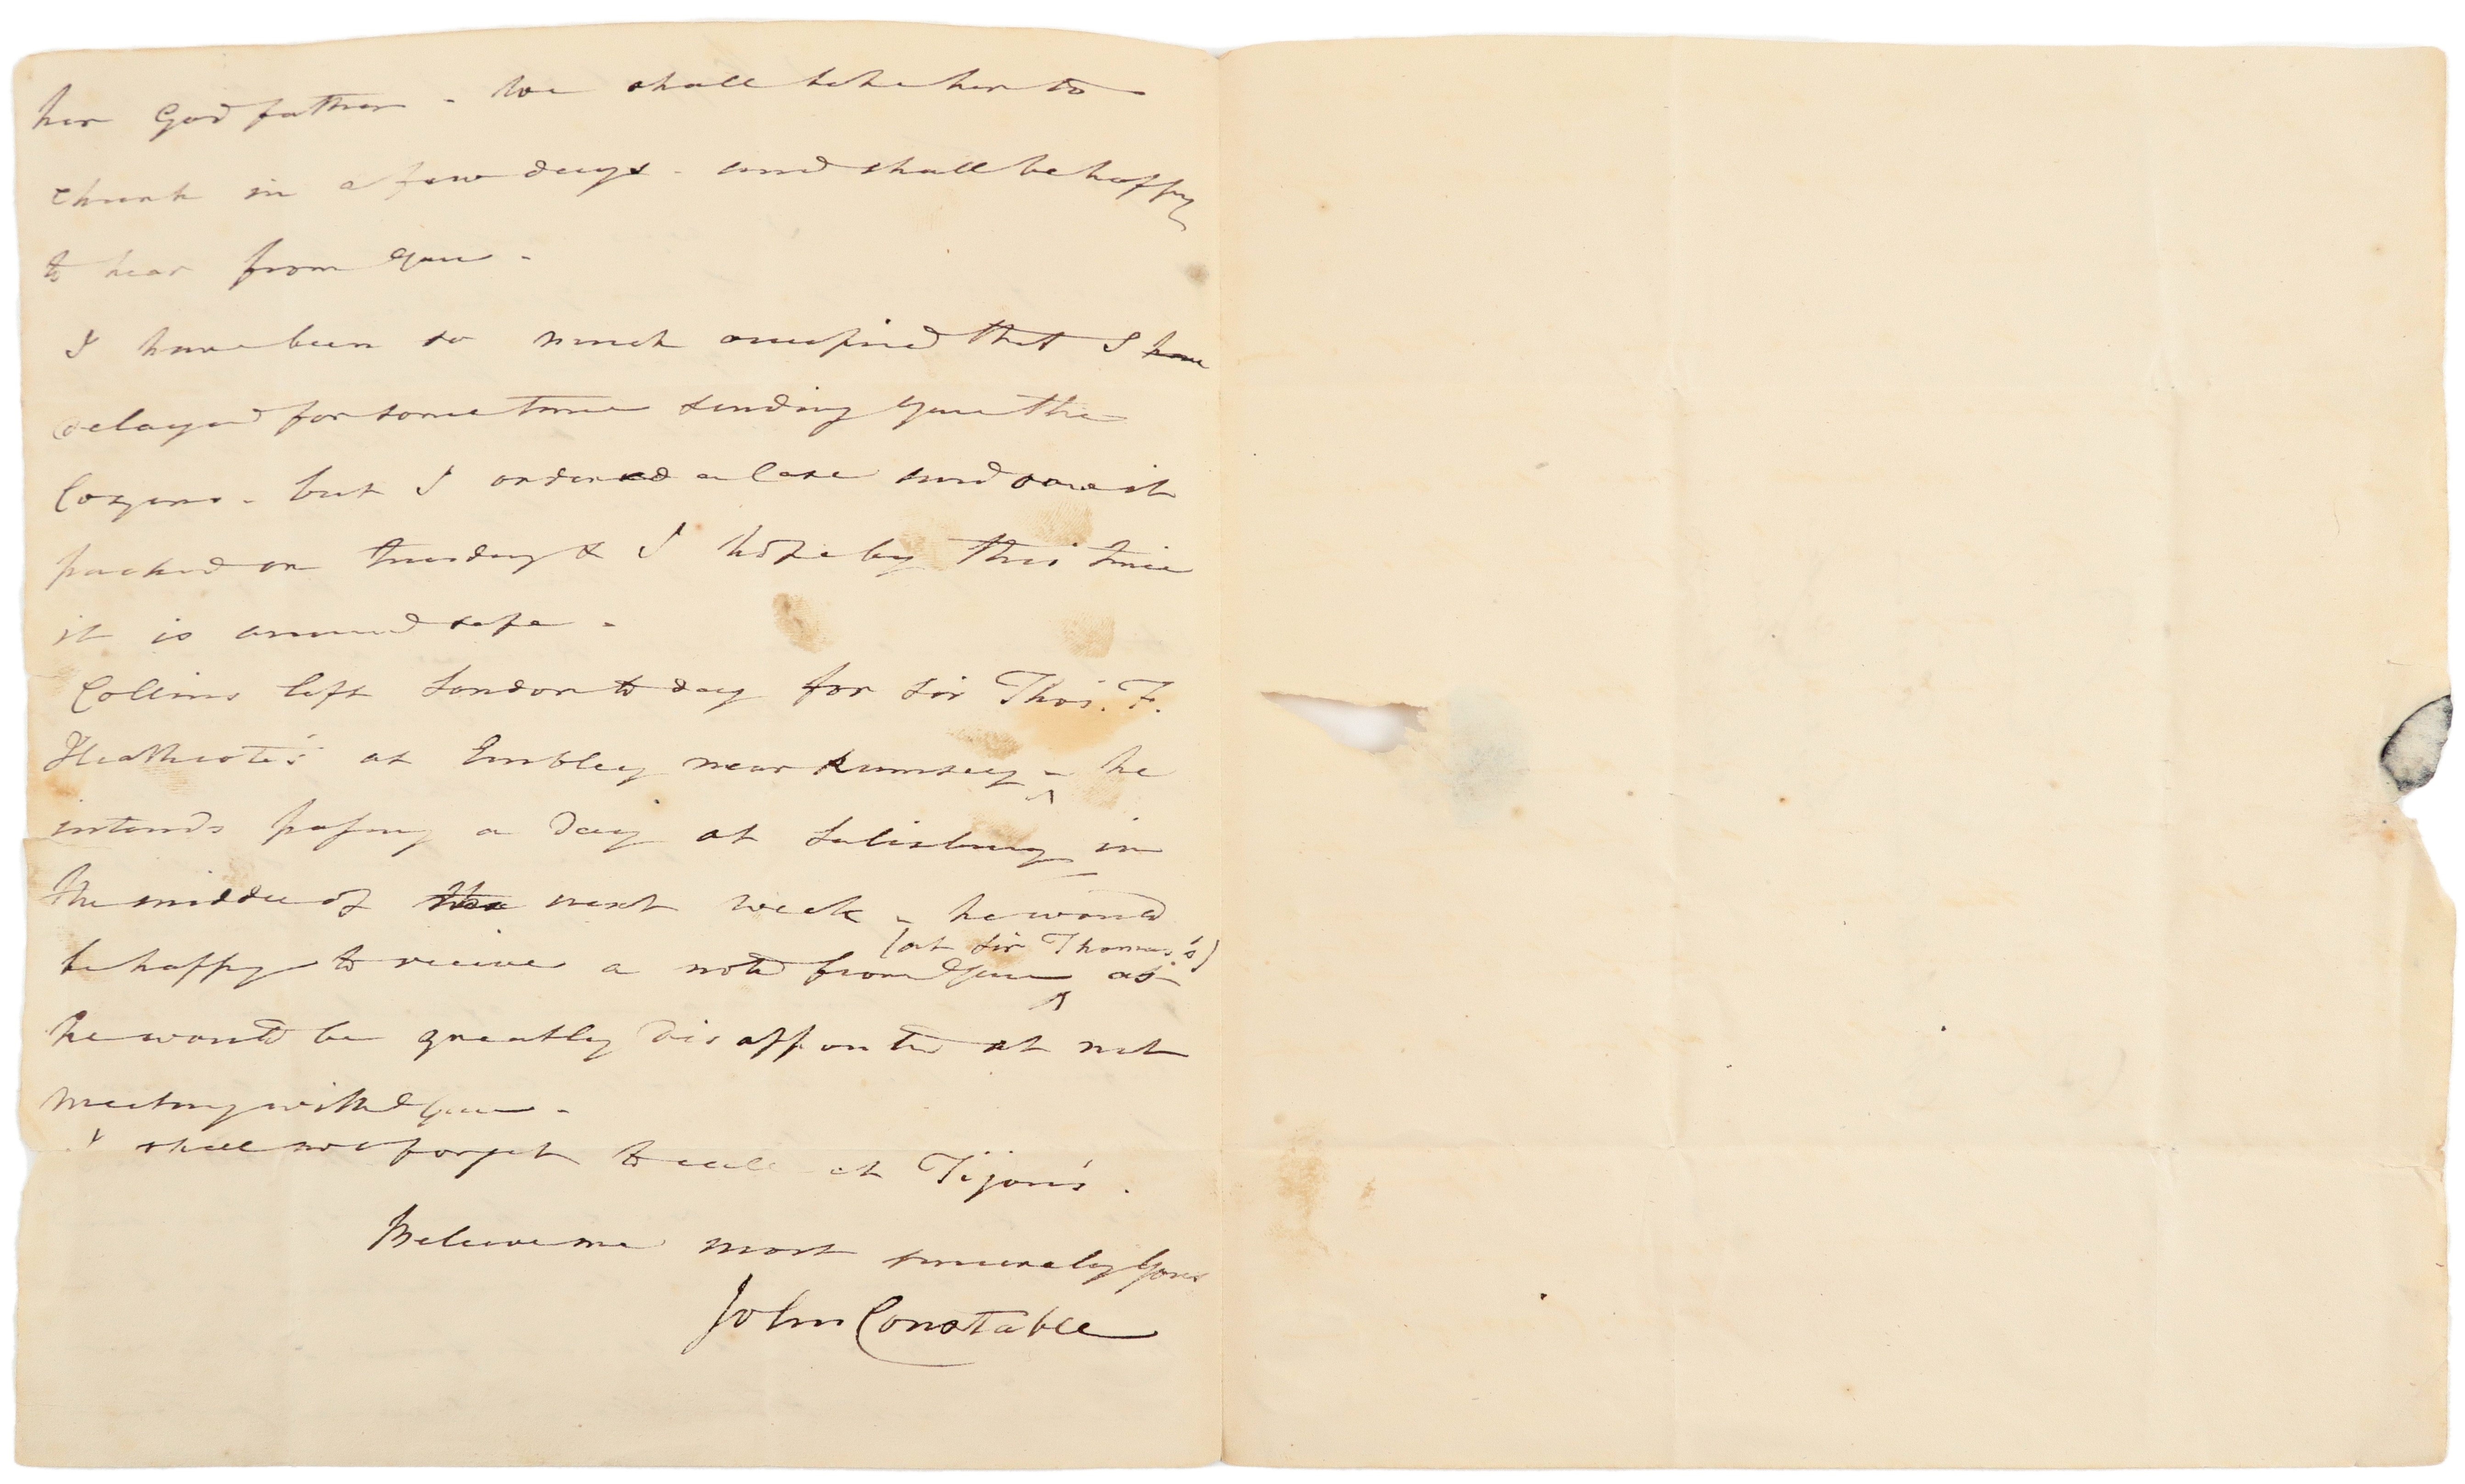 her Godfather - We shall take her to
Church in a few days - and shall be happy
to hear from you -
I have been so much occupied that I have
delayed for some time sending you the
Cozens - but I ordered a Case and saw it
packed on tuesday & I hope by this time
it is arrived safe -
Collins left London to day for Sir Thos. F.
Heathcote's at Embley near Rumsey - he
intends passing a Day at Salisbury in
the middle of the next week - he would
(at Sir Thomas's)
be happy to receive a note from you as
he would be greatly disappointed at not
meeting with you -
I shall not forget to call at Tijou's.
Believe me most sincerely yours
John Constable